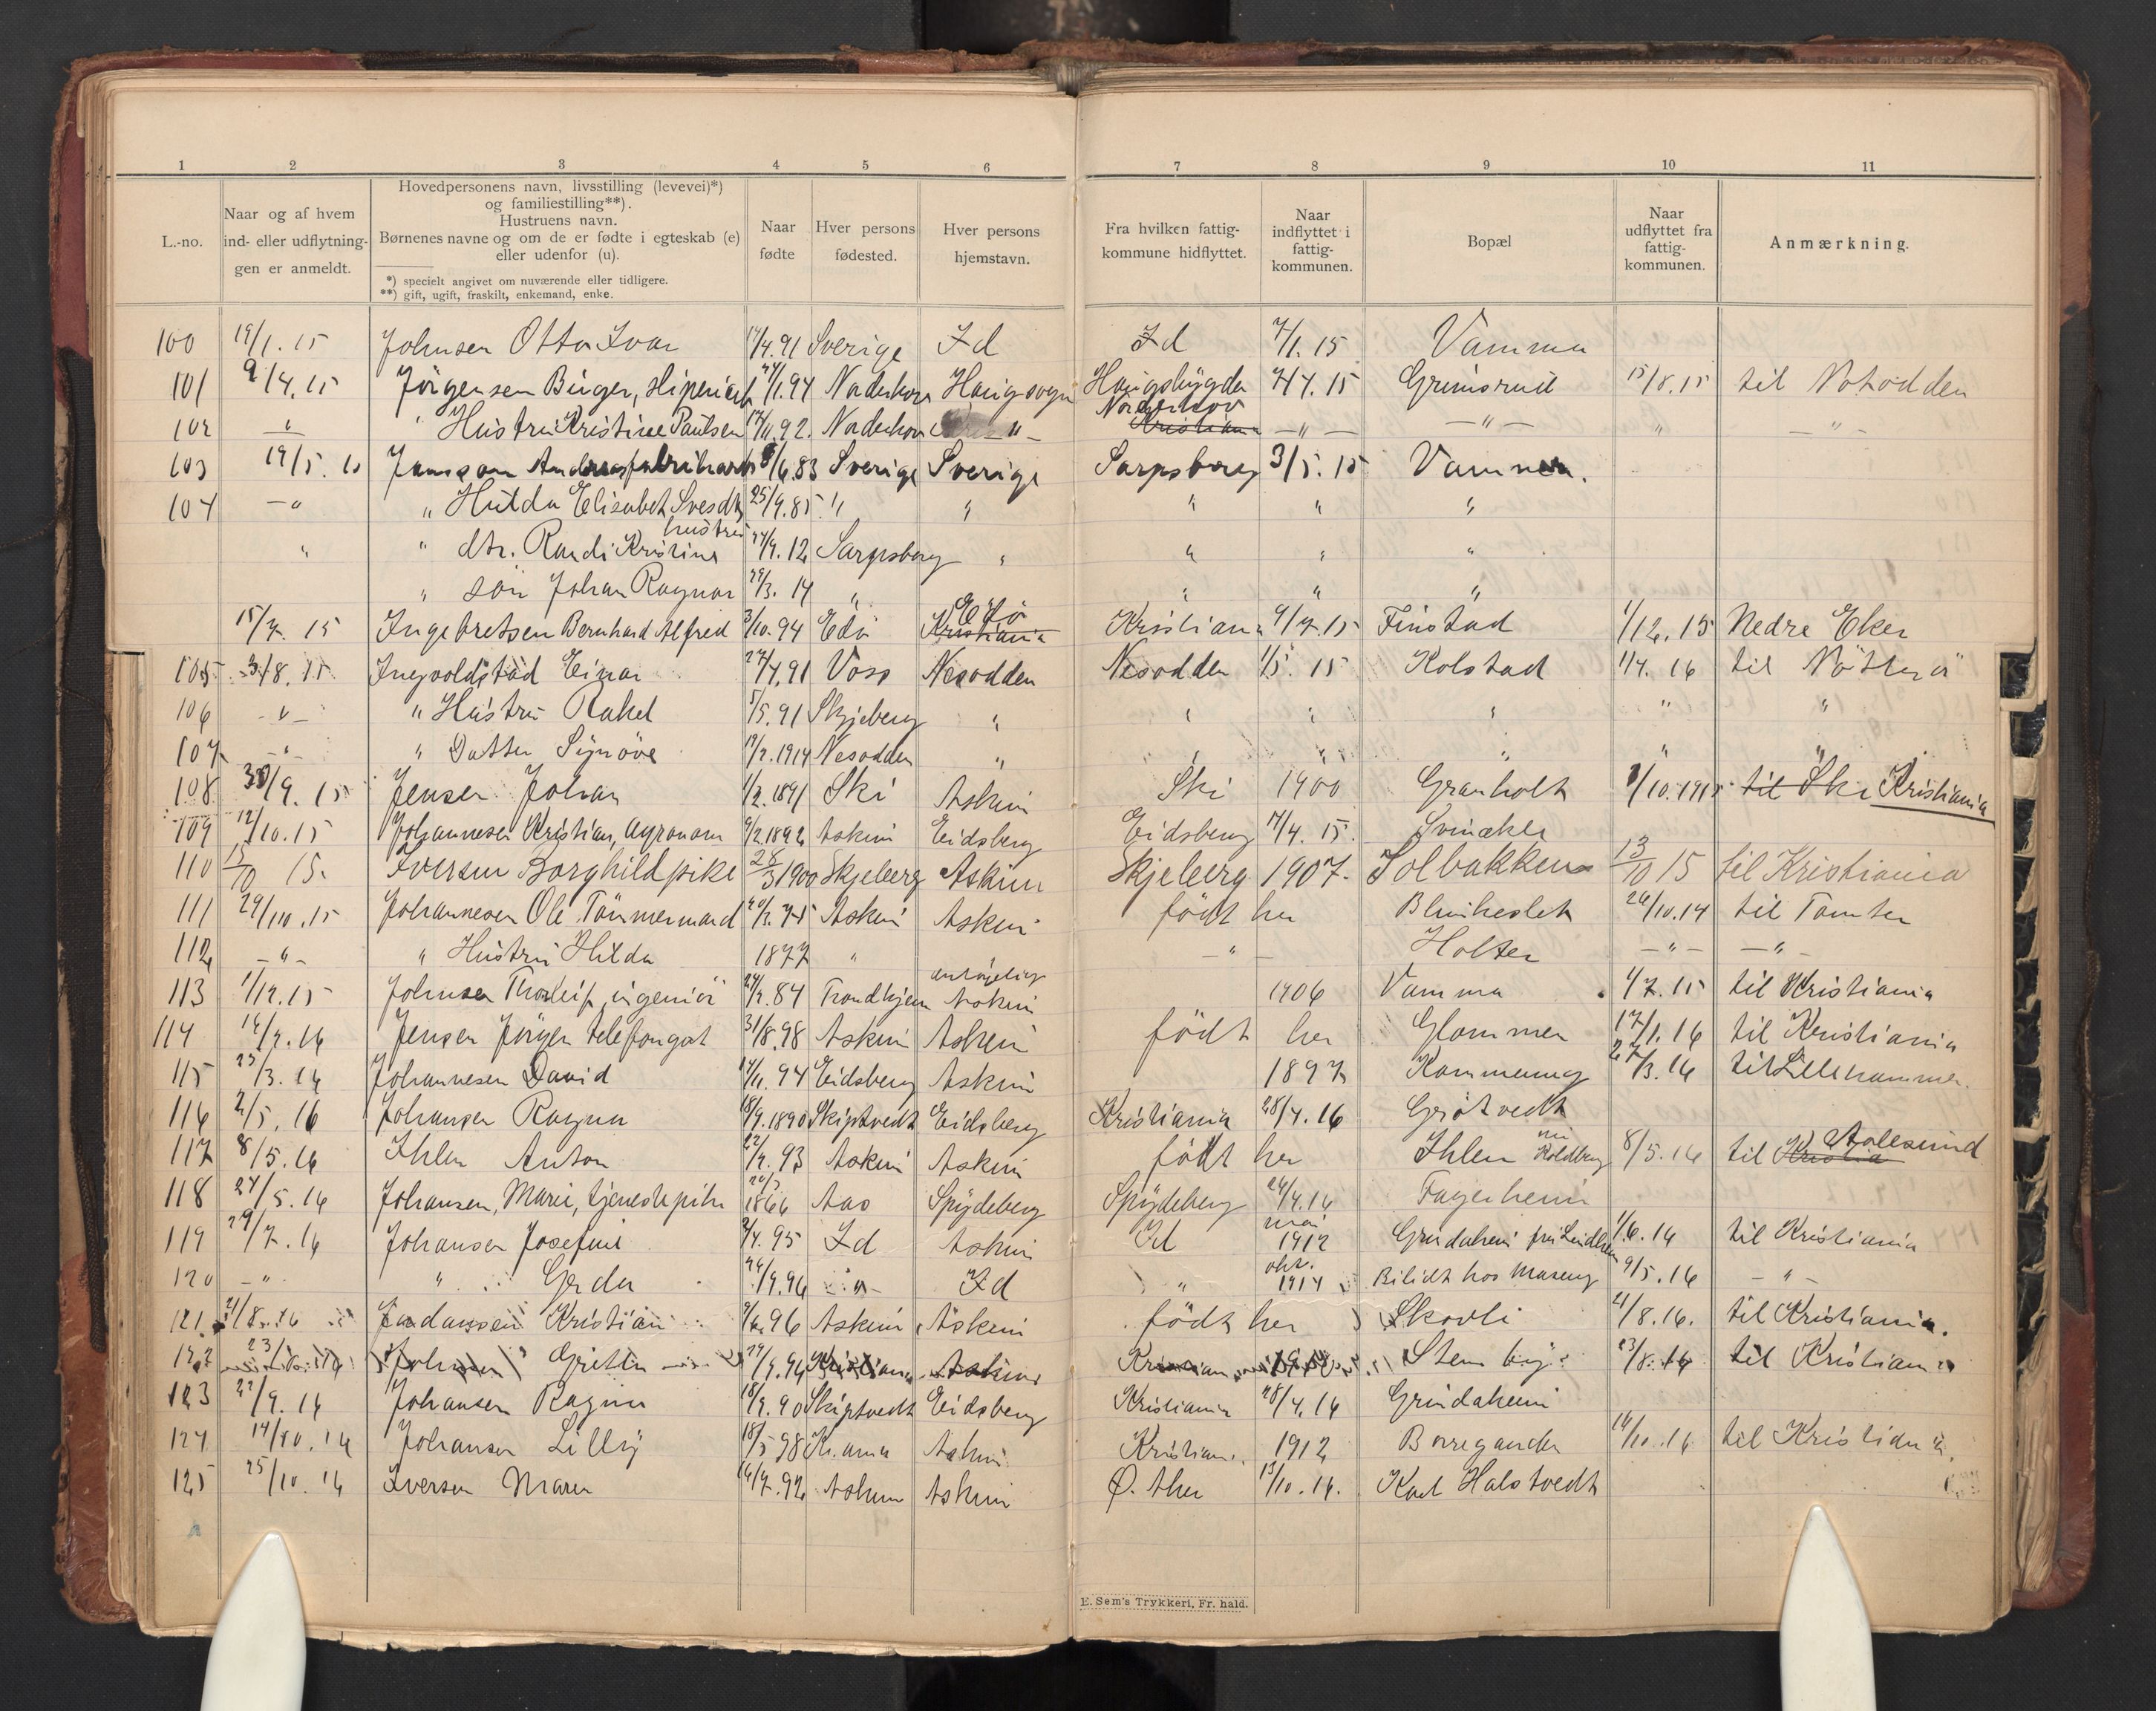 1 2 3 4 5 6 7 8 9 10 11
L.-no.
Naar og af hvem ind- eller udflytningen er anmeldt.
Hovedpersonens navn, livsstilling (levevei)*)
og familiestilling**).
Hustruens navn.
Børnenes navne og om de er fødte i egteskab (e)
eller udenfor (u).
*) specielt angivet om nuværende eller tidligere.
**) gift, ugift, fraskilt, enkemand, enke.
Naar fødte
Hver persons fødested.
Hver persons hjemstavn.
Fra hvilken fattig-kommune hidflyttet.
Naar indflyttet i fattig-kommunen.
Bopæl
Naar udflyttet fra fattig-kommunen.
Anmærkning.
100 19/1. 15 Johnsen Otto Ivar 14/4.91 Sverige Id Id 7/1. 15 Vamma
101 9/4. 15 Jörgensen Birger, 94 Naderhov Haugsogn Haugsbygda 7/4. 15 Grimsrud 15/8. 15 til Notodden
102 " " Hustru Kristine Paulsen 17/11 92. Naderhov " Norderhov Kristiania " " " "
103 19/5. 15 Anders 6.83 Sverige Sverige Sarpsborg 3/5. 15 Vamma.
104 " " Hulda Elisabet hustru 25/9.85 " " " " "
" " dtr. Randi Kristine 12 Sarpsborg " " " "
" sön Johan Ragnar 29/3. 14 " " " "
15/7. 15 Ingebretsen Bernhard Alfred 3/10.94 Edö Edö Kristiania Kristiania 9/7.15 Finstad 1/12. 15 Nedre Eker
105 8. 15 Ingvoldstad Einar 27/4.91 Voss Nesodden Nesodden 1/5. 15 Kolstad 1/4. 16 til Nötterö
106 " " Hustru Rakel 5/5.91 Skjeberg " " " " " "
107 " " Datter Synöve 19/2.1914 Nesodden " " " " " "
108 30/9. 15 Jensen Johan 1/2.1891 Ski Askim Ski 1900 Granholt 1/10.1915 til Ski Kristiania
109 12/10.15 Johannesen Kristian, Agronom 9/2.1892 Askim Eidsberg Eidsberg 14/4. 15. Svinekle
110 15/10 15. Iversen Borghild pike 28/3 1900 Skjeberg Askim Skjeberg 1907. Solbakken 13/10 15 til Kristiania
111 29/10.15 Johannesen Ole Tömmermand Askim Askim född her 26/10.14 til Tomter
112 " " Hustru Hilda 1877 " " Holter " "
113 1/12.15 Johnsen Thorleif, ingeniör 84 Trondhjem antagelig Askim 1906 Vamma 1/7. 15 til Kristiania
114 14/2.16 Jensen Jörgen telefongut 31/8.98 Askim Askim född her Glommen 17/1. 16 til Kristiania
115 23/3. 16 Johannesen David 14/11. 94 Eidsberg Askim 1897 27/3. 16 til Lillehammer.
116 2/5. 16 Johansen Ragna 18/9.1890 Skiptvedt Eidsberg Kristiania 28/4.16 Grötvedt
117 8/5.16 Ihlen Anton 93 Askim Askim född her Ihlen 8/5.16 til Kristia Aalesund
118 24/5.16 Johansen, Marie, tjenestepike 1866 Aas Spydeberg Spydeberg 24/4.16 Fagerheim
119 29/7.16 Johansen Josefine 95 Id Askim Id mai 1912 Grindaheim 1/6. 16 til Kristiania
120 " " Gerda 96 " Id " okt. 1914 hos 9/5.16 "
121 21/8.16 Kristian 96 Askim Askim född her Skovli 21/8. 16. til Kristiania.
122 23/8.16 Johnsen Kristiania Askim Kristiania Stenby 23/8.16 til Kristiania
123 22/9. 16 Johansen Ragna 18/9. 90 Skiptvedt Eidsberg Kristiania 28/4.16 Grindaheim
124 14/10. 16 Johansen Lilly 18/5 98 Kr.ania Askim Kristian. 1912 16/10.16 til Kristiania
125 25/10. 16 Iversen Maren 92 Askim Askim Ö. Aker 13/10.16. Karl Halstvedt
E. Sem's Trykkeri, Fr. hald.
K